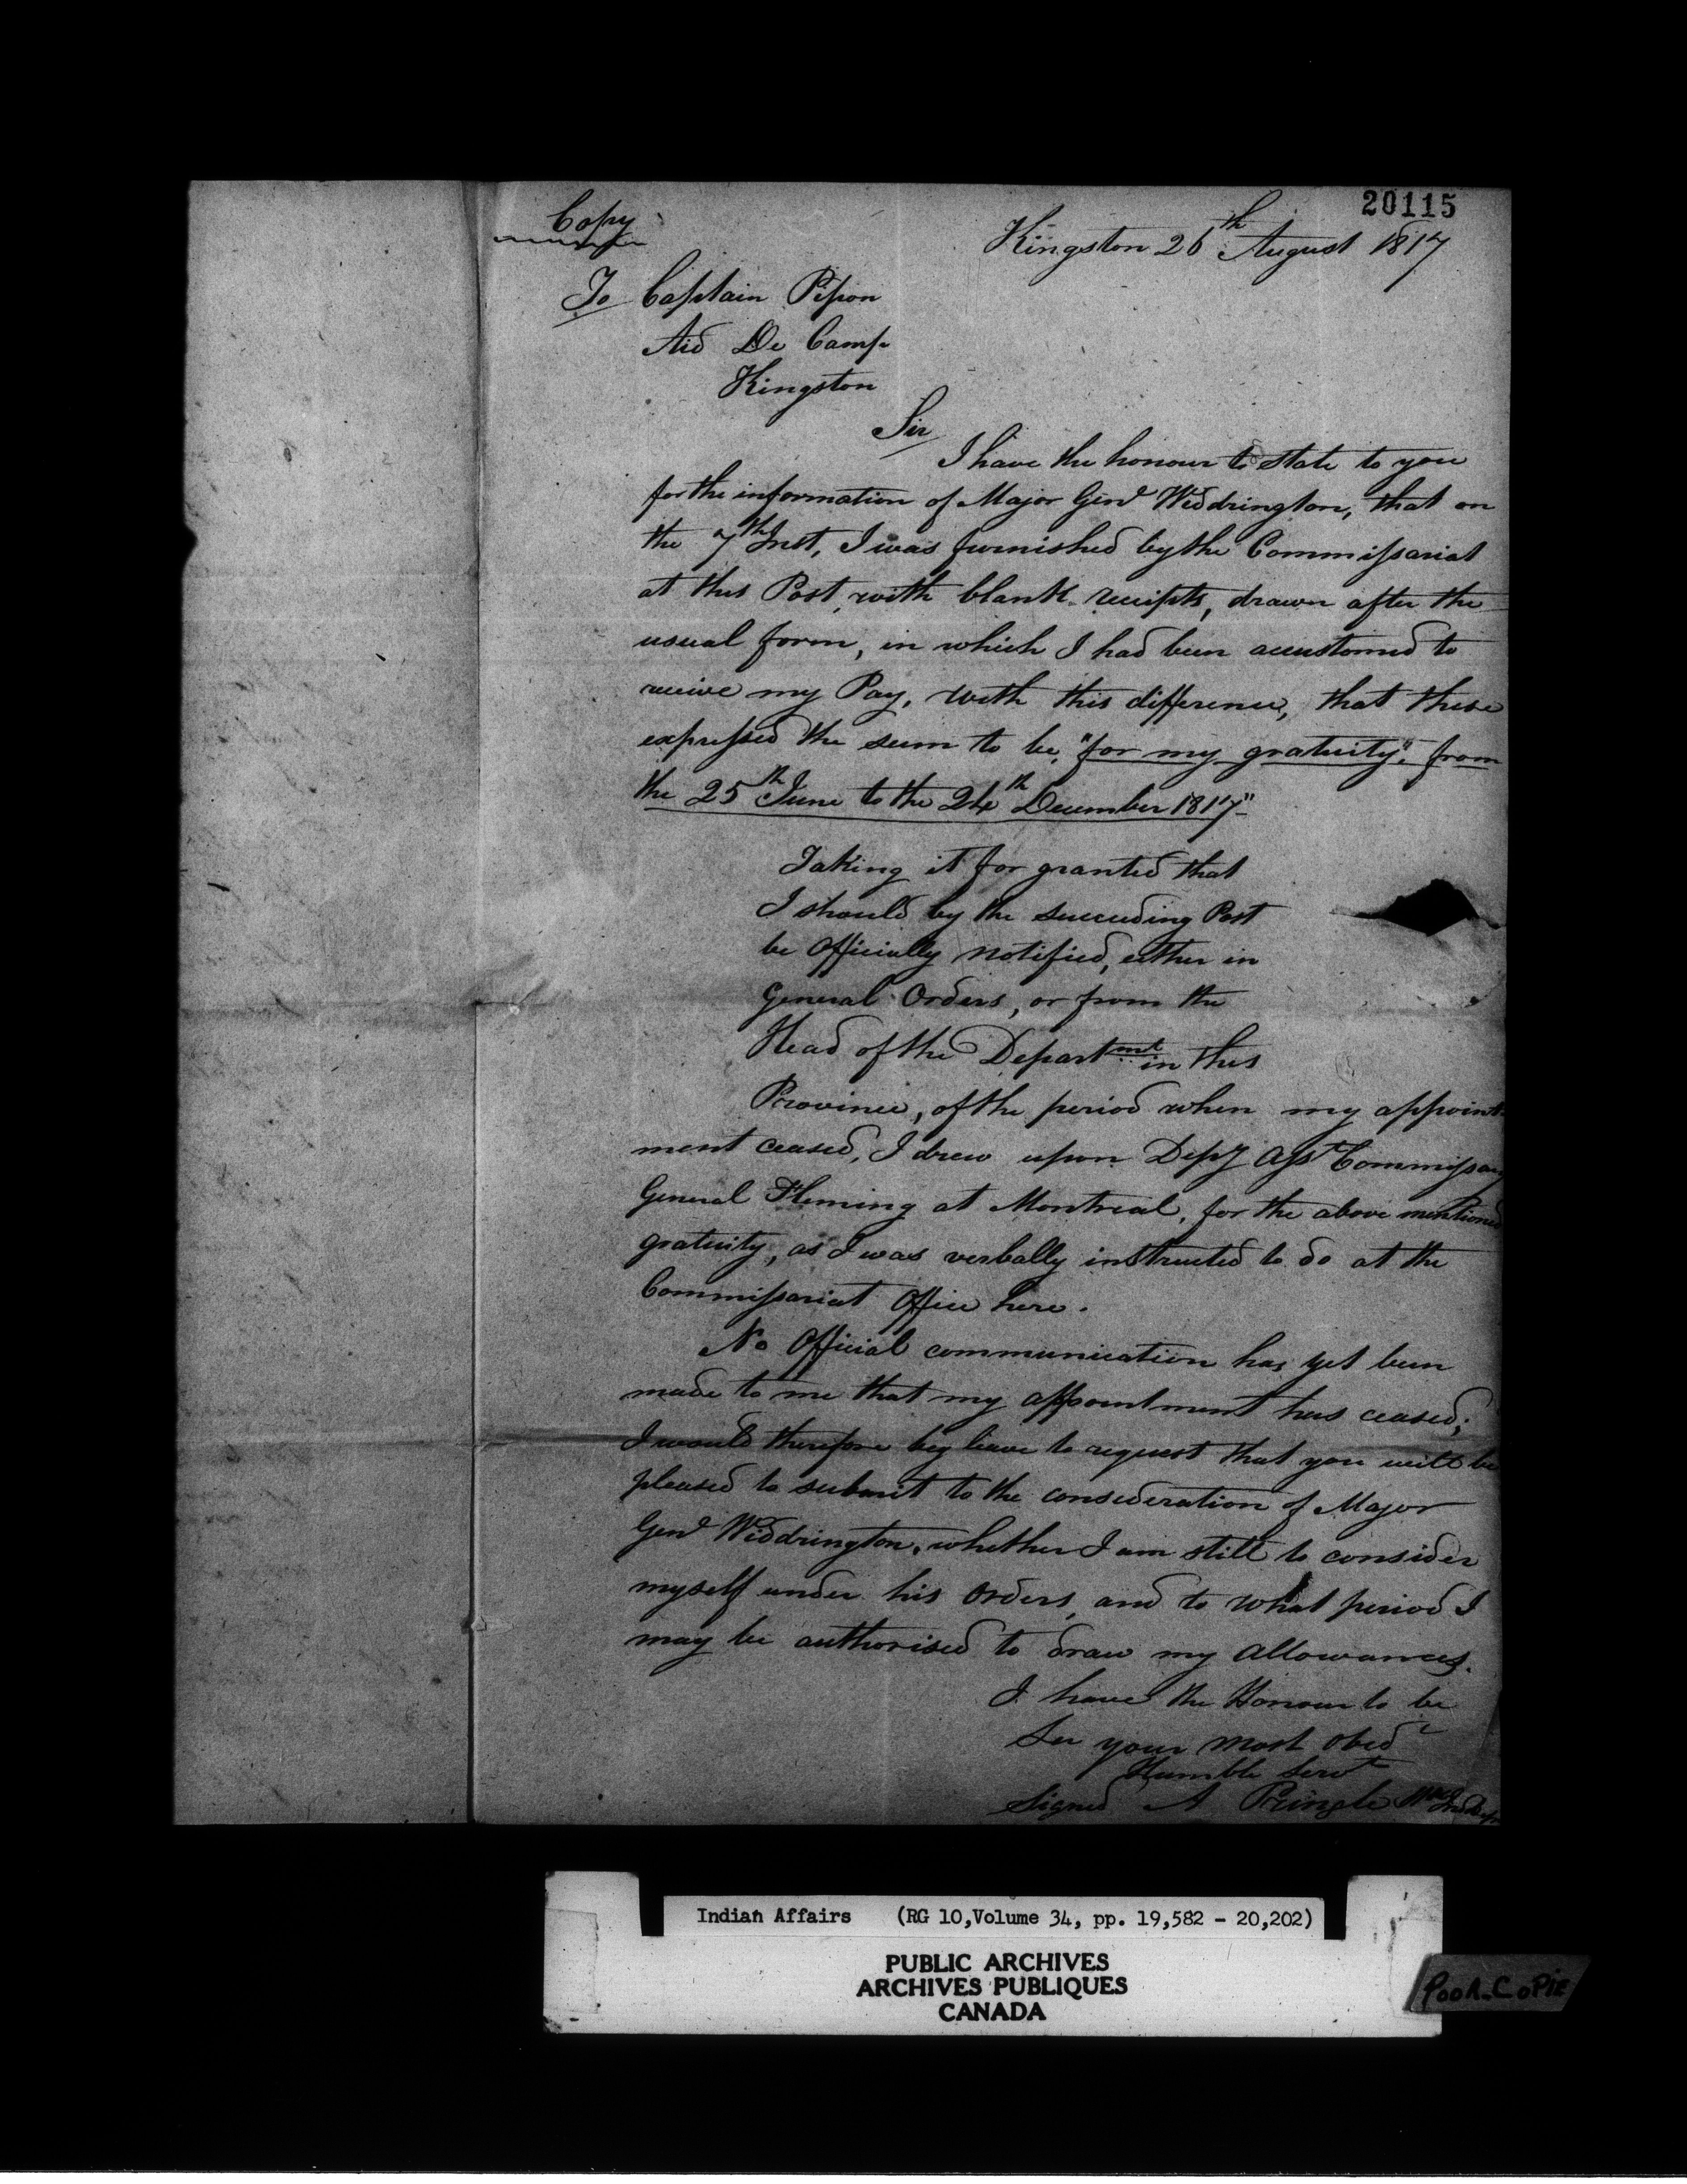 20115
Copy
Kingston 26th August 1817
To Captain Pipon
Aid De Camp
Kingston
Sir
I have the honour to state to you
for the information of Major Genl Widdrington, that on
the 7th Inst, I was furnished by the Commissariat
at this Post, with blank receipts, drawn after the
usual form, in which I had been accustomed to
receive my Pay, with this difference, that these
expressed the sum to be, "for my gratuity", from
the 25th June to the 24th December 1817"
Taking it for granted that
I should by the succeeding Post
be Officially notified, either in
General Orders, or from the
Head of the Departmnt in this
Province, of the period when my appoint-
ment ceased, I drew upon Depy Asst Commissary
General Fleming at Montreal, for the above mentioned
gratuity, as I was verbally instructed to do at the
Commissariat Office here.
No Official communication has yet been
made to me that my appointment has ceased;
I would therefore beg leave to request that you will be
pleased to submit to the consideration of Major
Genl Widdrington, whether I am still to consider
myself under his Orders, and to what period I
may be authorised to draw my Allowances.
I have the Honour to be
Sir your most obedt
Humble Servt
Signed A Pringle
Indian Affairs (RG 10, Volume 34, pp. 19,582 - 20,202)
PUBLIC ARCHIVES
ARCHIVES PUBLIQUES
CANADA
POOR COPIE